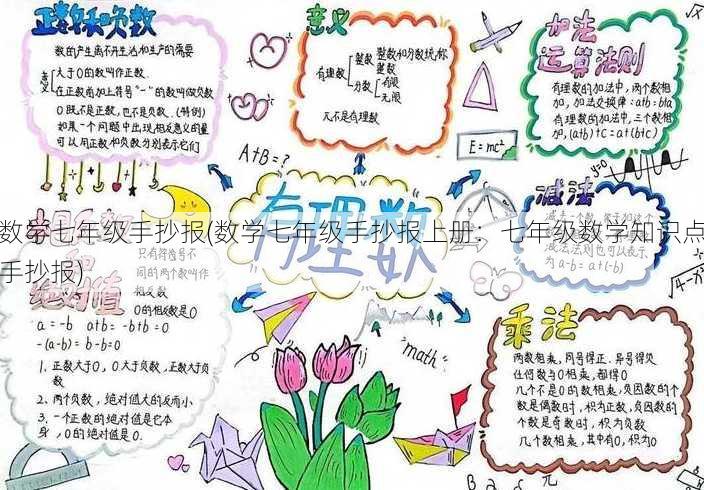 正数和负数
数的产生离不开生活和生产的需要
意义
大于0的数叫作正数.
在正数前加上符号"-"的数叫做负数
0既不是正数,也不是负数.(特例)
如果一个问题中出现相反意义的量
可以用正数和负数分别表示它们
意义
有理数
整数
整数和分数统称
整数
分数
有限
无限
π不是有理数
加法
运算法则
有理数的加法中,两个数相
加,加法交换律:a+b=b+a
有理数的加法中,三个数相
加,(a+b)+c=a+(b+c)
A+B=?
E=mc²
y=0
有理数
减法
减去一个数,等于加
减法法则也可以表示
为a-b=a+(-b)
数学七年级手抄报(数学七年级手抄报上册:七年级数学知识点
手抄报)
相反数
和
绝对值
只有符号不
同的两个数叫作
相反数
0的相反数是0
a=-b a+b= -b+b=0
-(a-b)=b-b=0
1. 正数大于0,0大于负数,正数大于负
数
2. 两个负数,绝对值大的反而小
3. 一个正数的绝对值是它本
身,0的绝对值是0.
"math"
乘法
两数相乘,同号得正.异号得负
任何数与0相乘,都得0
几个不是0的数相乘,负因数的个
数是偶数时,积为正数,负因数的
个数是奇数时,积为负数
几个数相乘,其中有0,积为0
B a π